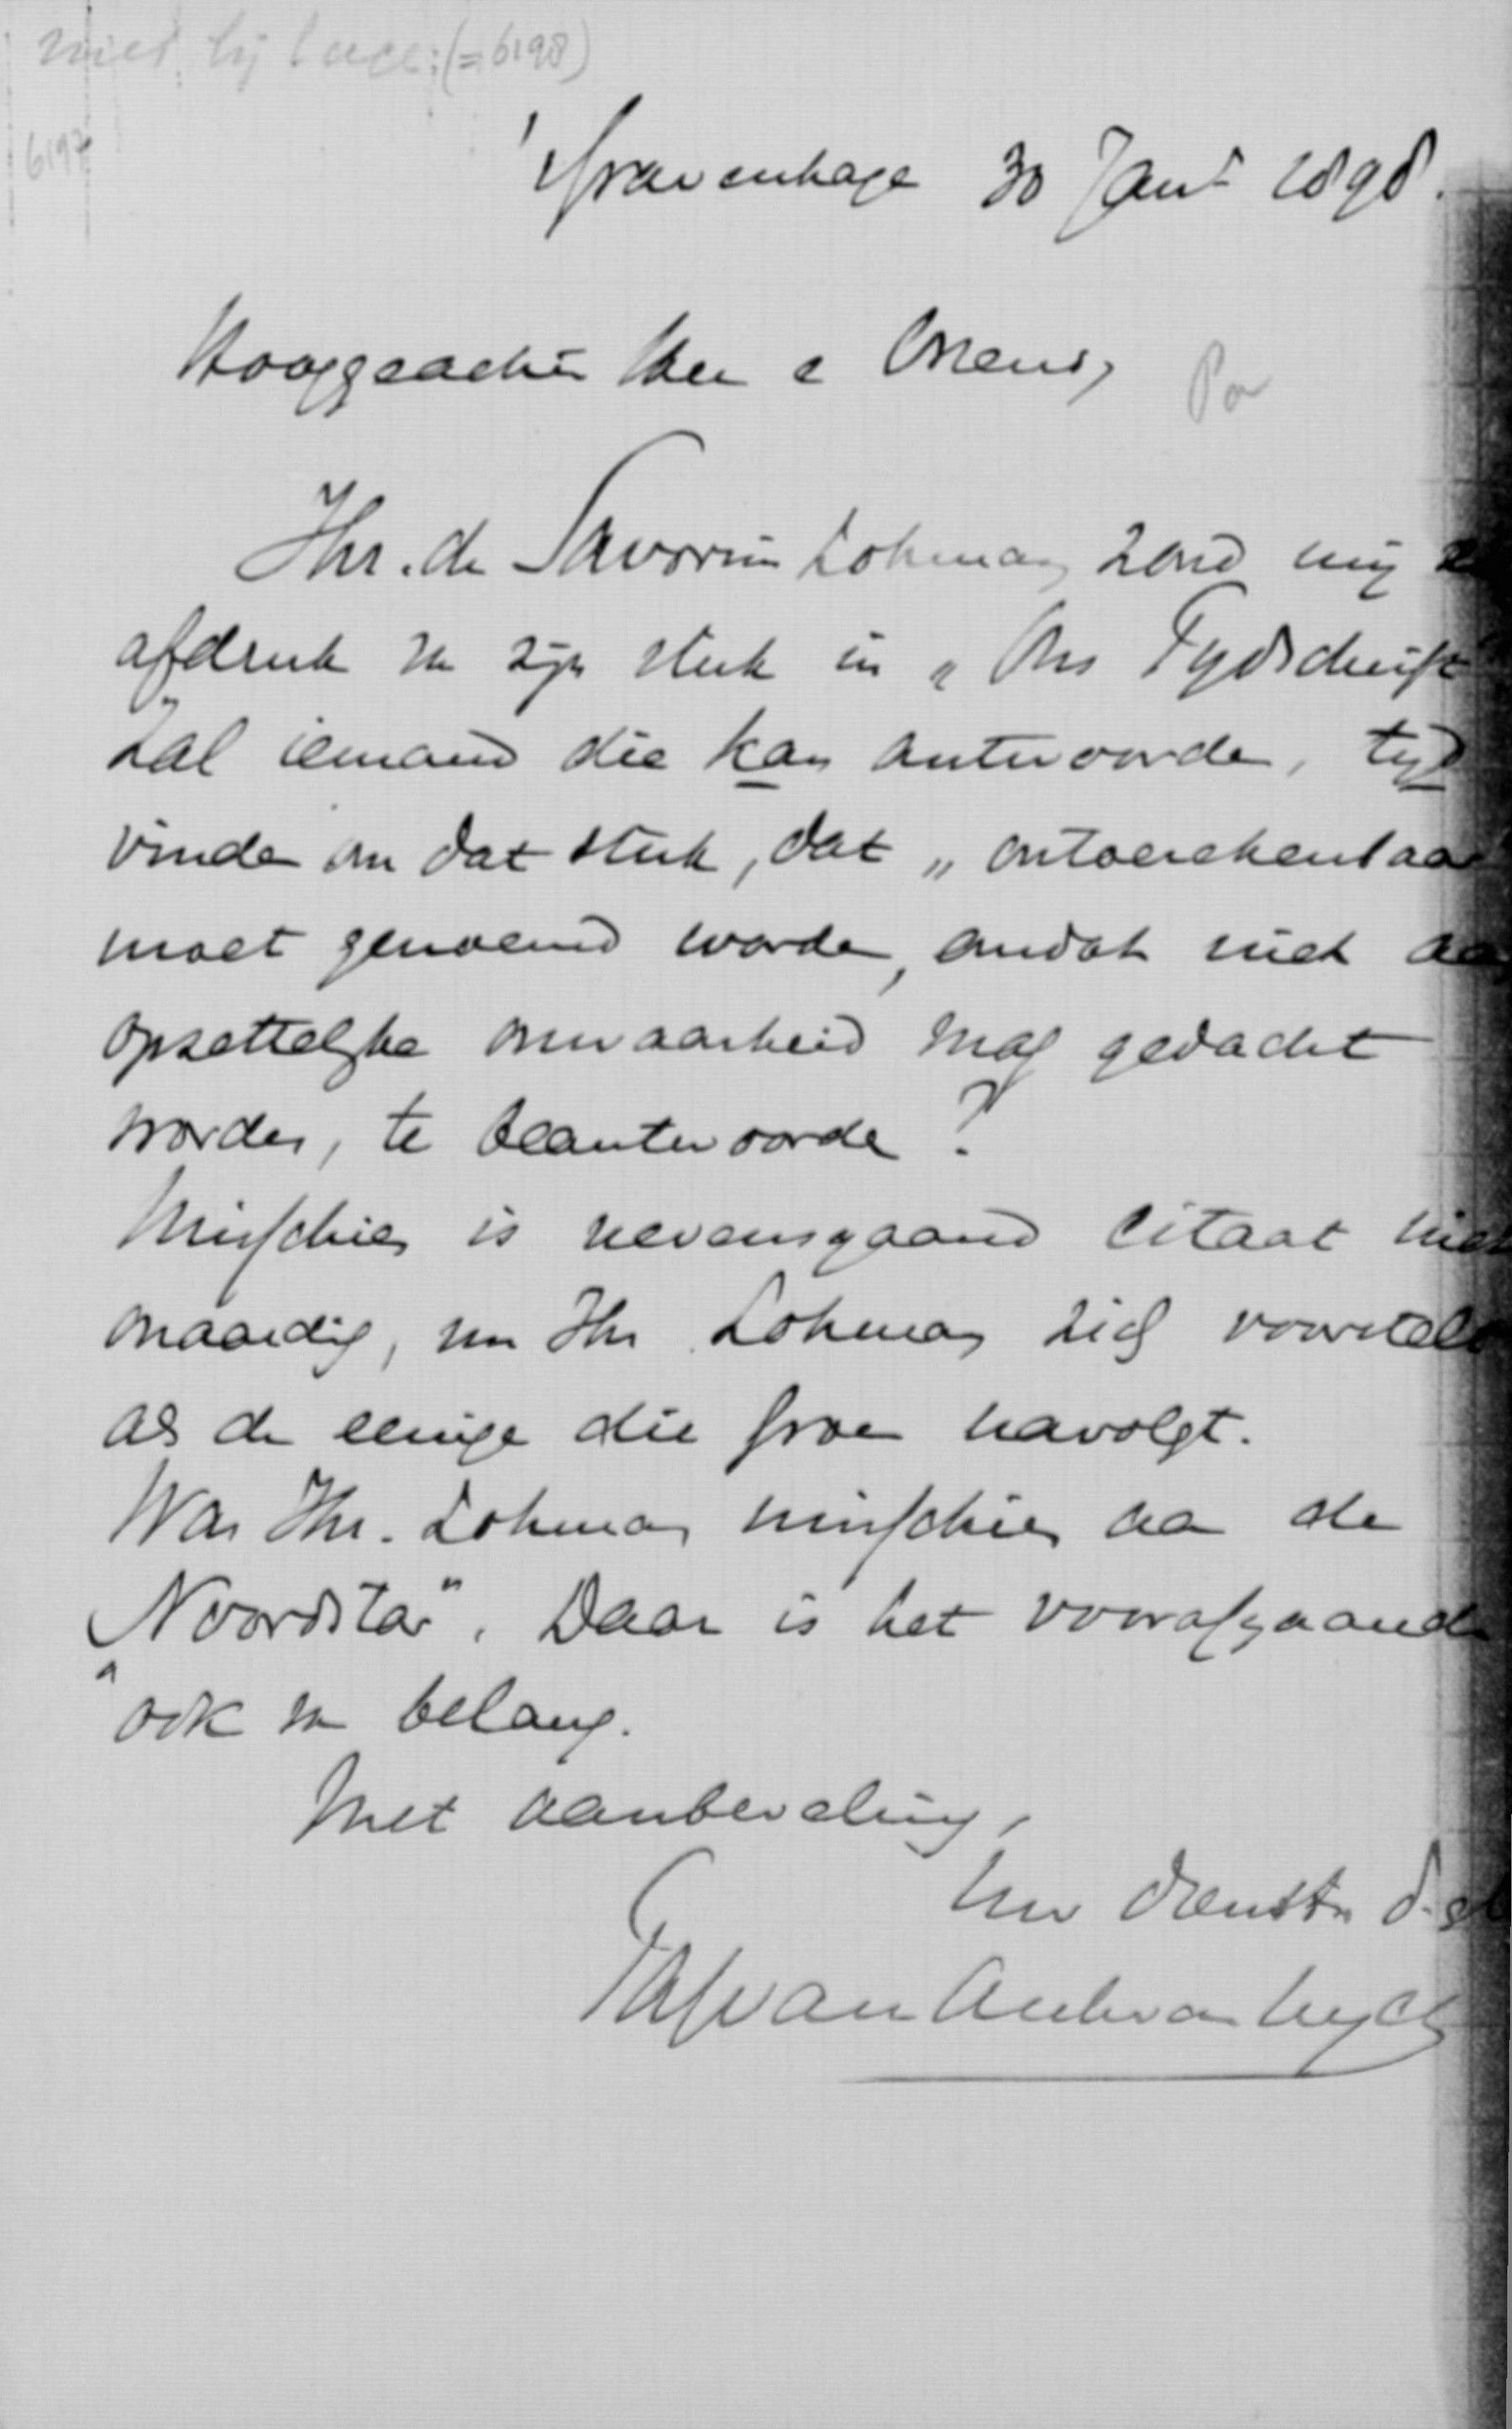 niet bij (=6198)
6197
's Gravenhage 30 Jan 1898.
Hooggeachte Heer en Vriend,
Jhr. de Savornin Lohman zond mij
afdruk van zijn stuk in „Ons Tijdschrift
Zal iemand die kan antwoorden, tijd
vinden om dat stuk, dat „ontoerekenbaar
moet genoemd worden, omdat niet aan
opzettelijke onwaarheid mag gedacht
worden, te beantwoorden?
Misschien is nevensgaand citaat niet
onaardig, nu Jhr Lohman zich voorstelt
als de eenige die Groen navolgt.
Was Jhr. Lohman misschien aan de
„Noordstar". Daar is het voorafgaande
ook van belang.
Met aanbeveling,
Uw dienstv.
van Asch van Wyck